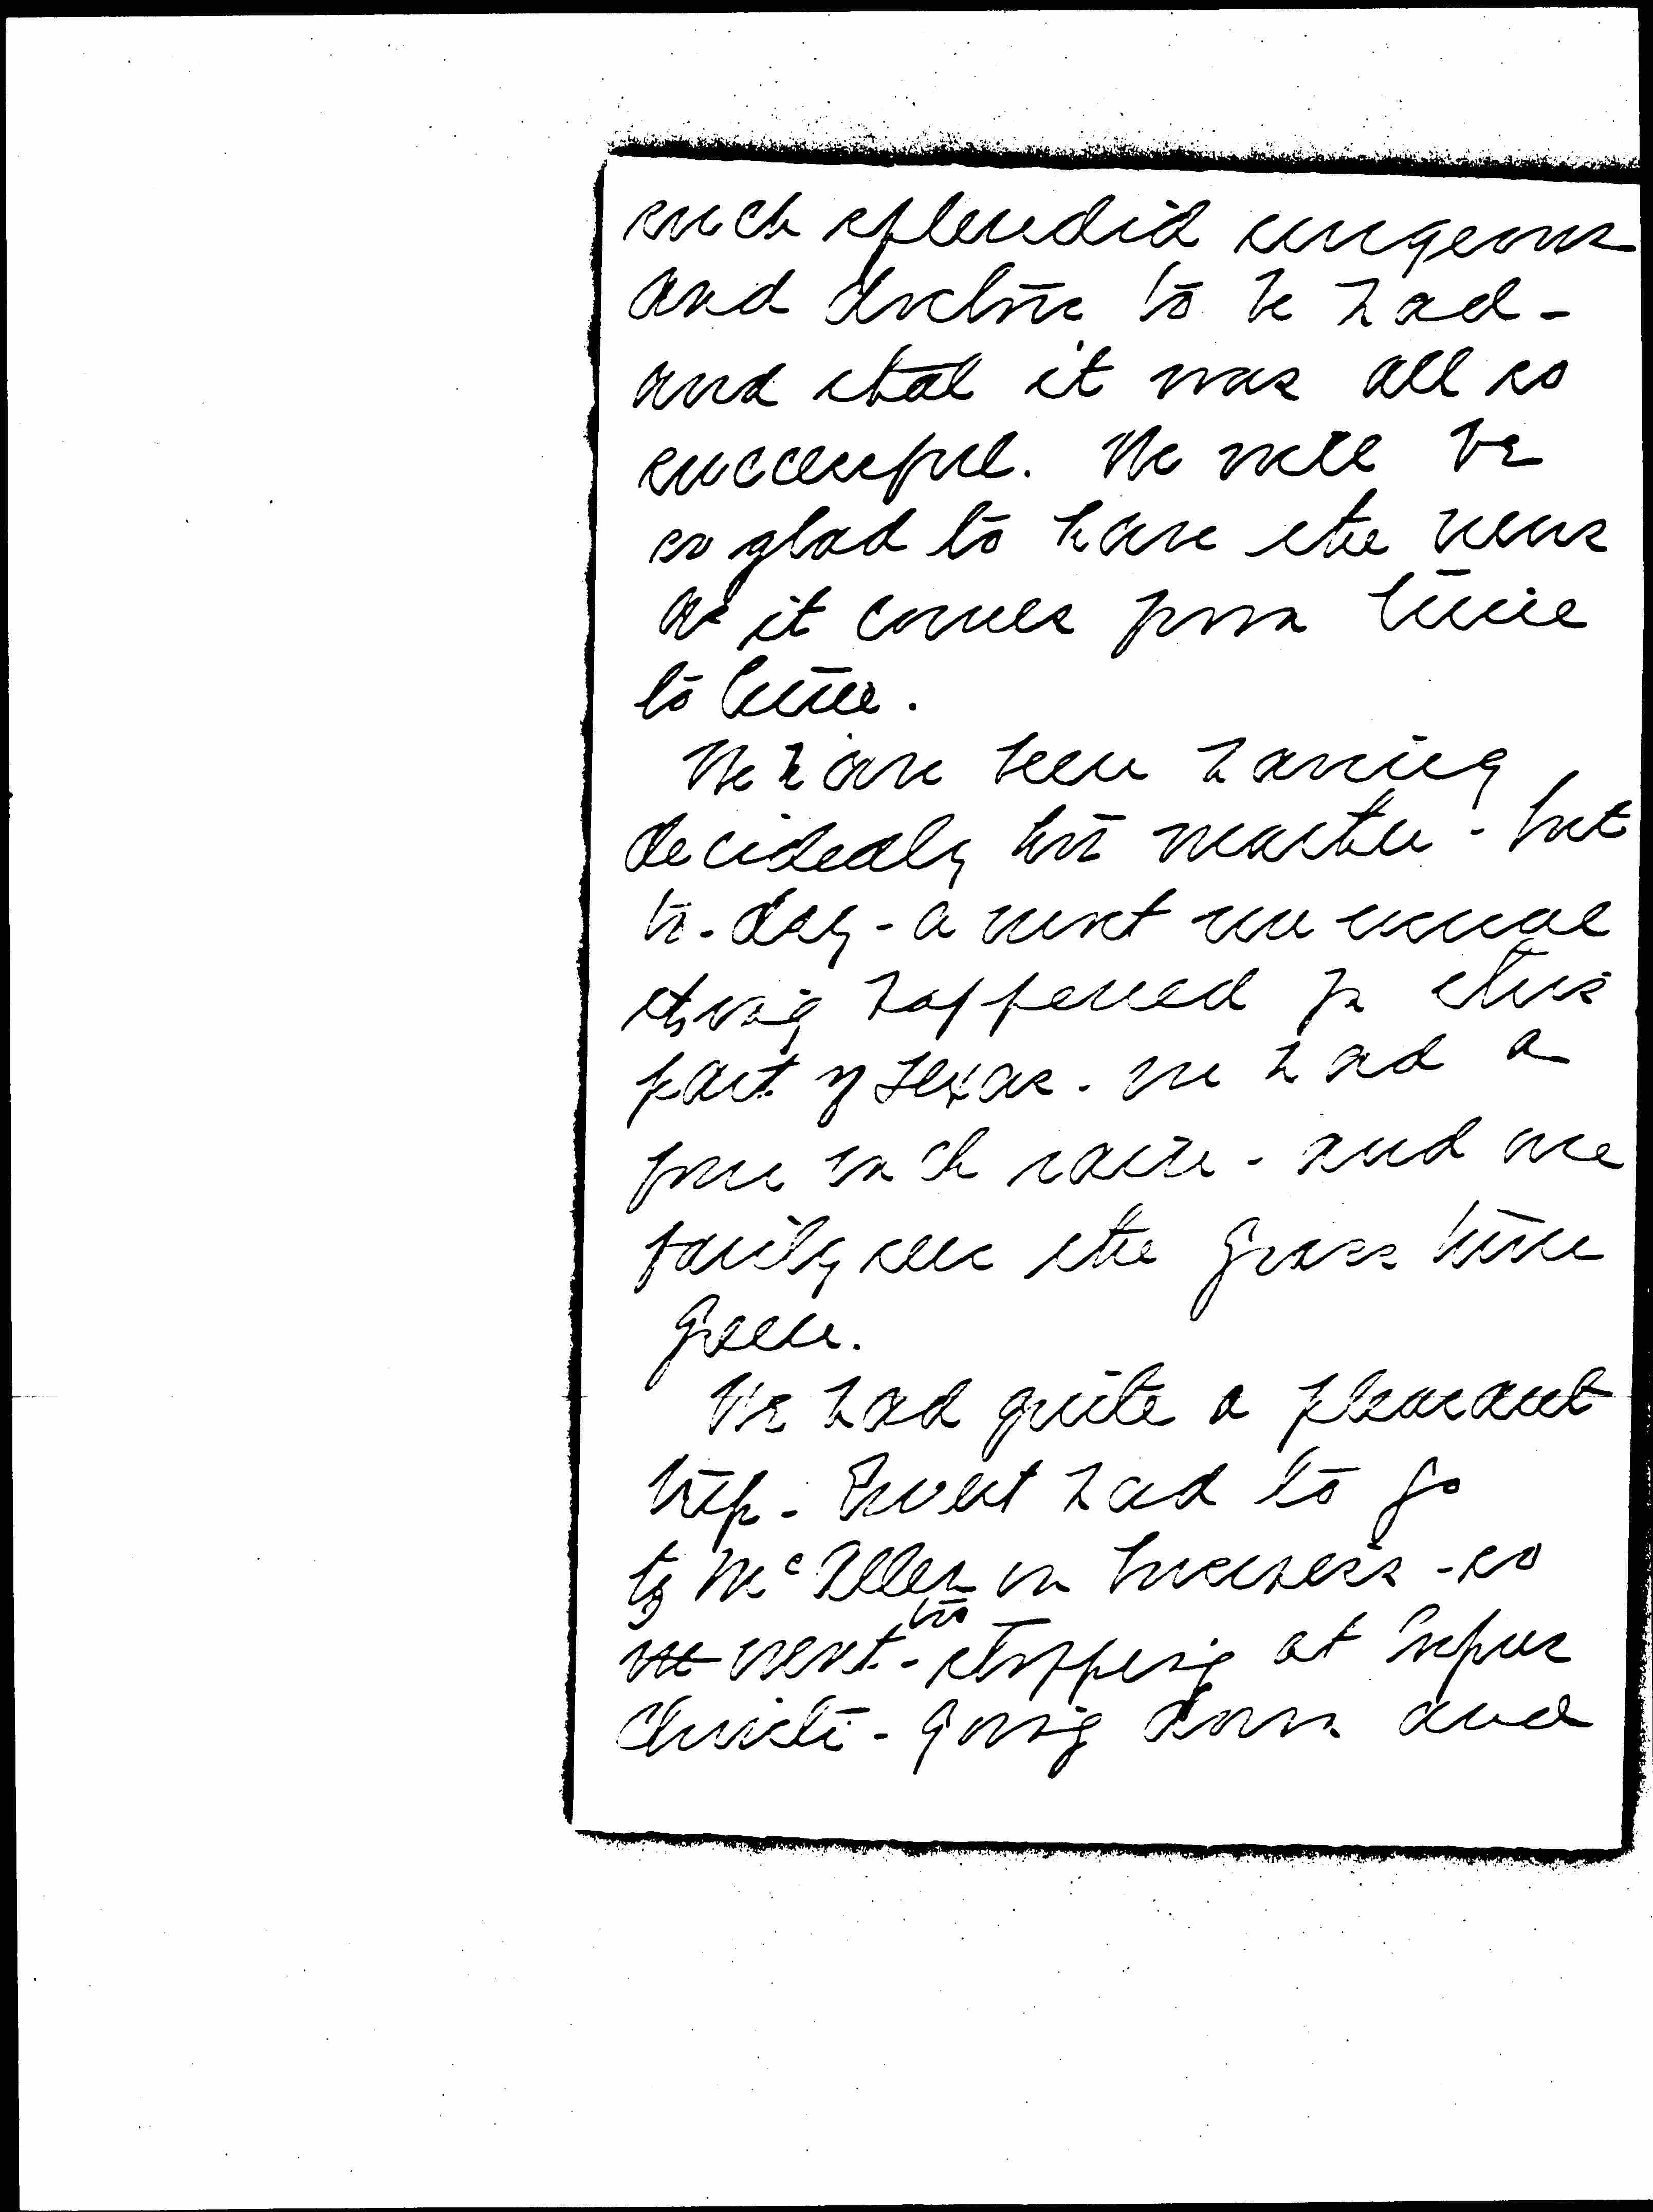 such splendid surgeons
and doctors to be had -
and that it was all so
successful. We will be
so glad to have the news
as it comes from time
to time.
We have been having
decidedly hot weather - but
to-day - a most unusual
thing happened for this
part of Texas - we had a
four inch rain - and we
fairly see the grass turn
green.
We had quite a pleasant
trip - Ernest had to go
to McAllen on business - so
we went - to stopping at Corpus
Christi - going down and